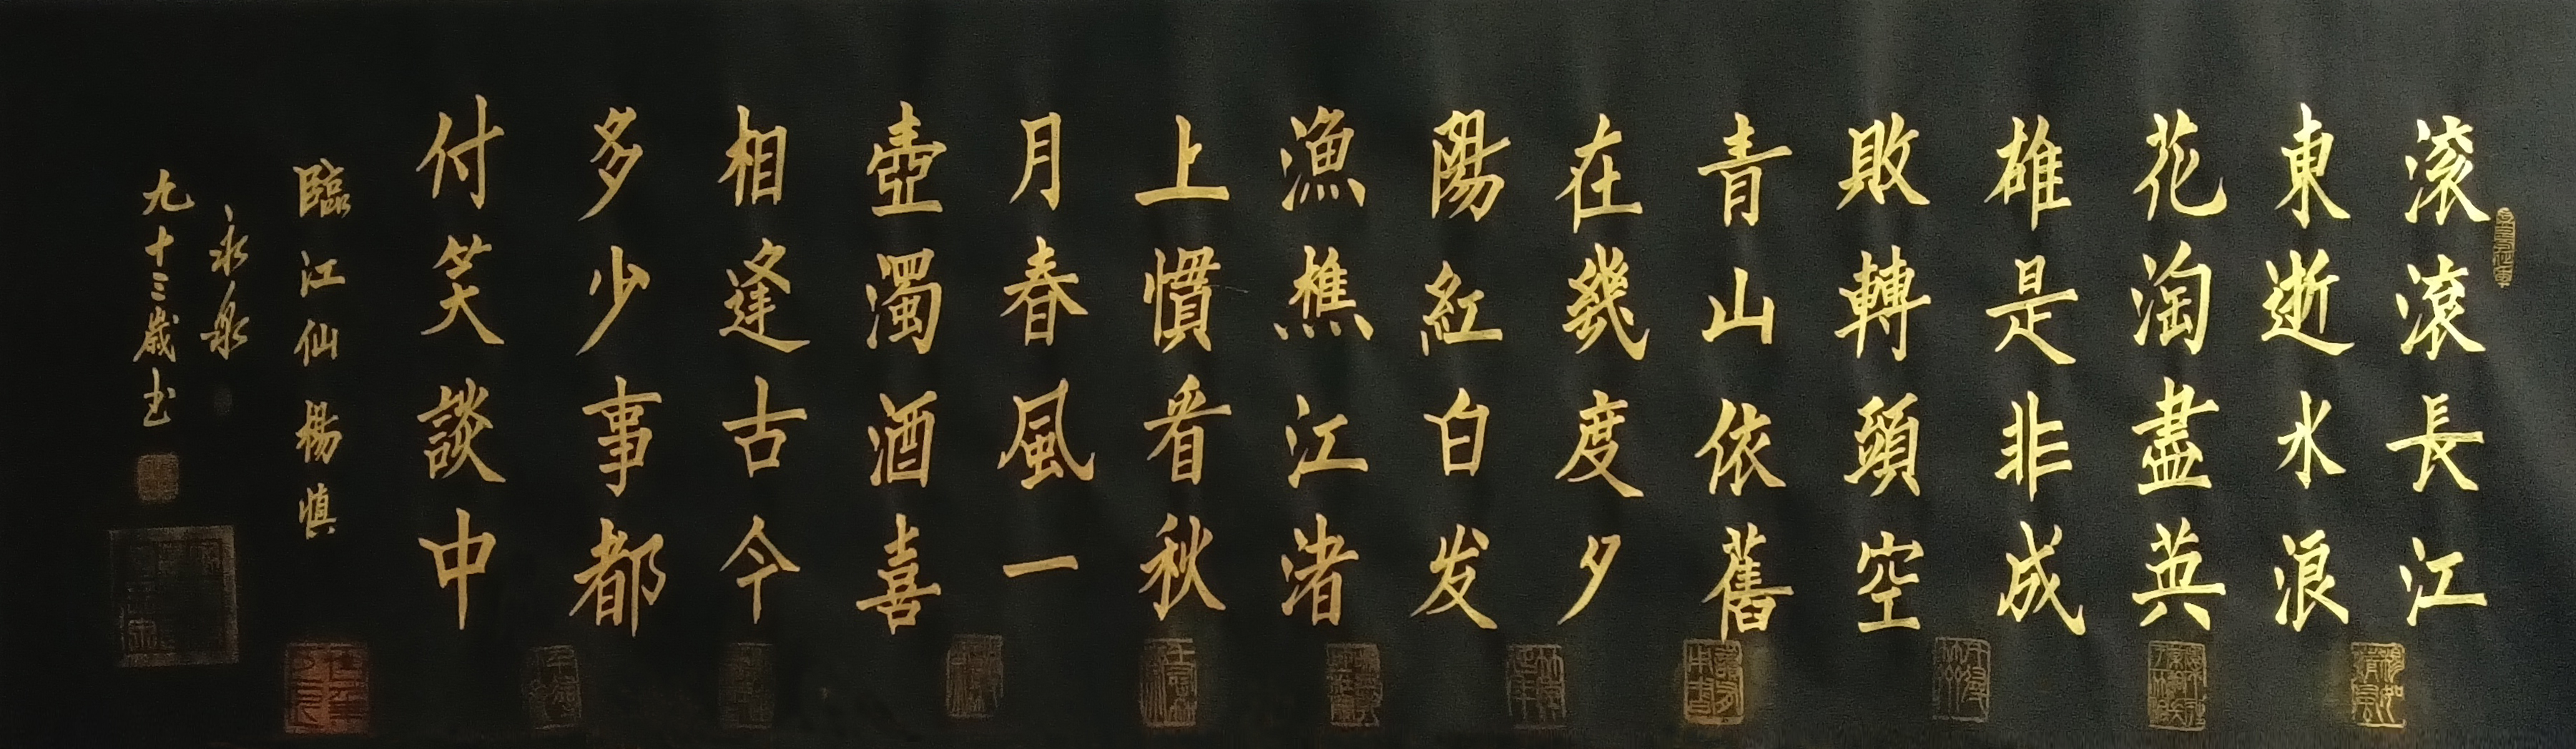 滚滚長江
東逝水浪
花淘盡英
雄是非成
敗轉頭空
青山依舊
在幾度夕
陽紅白发
漁樵江渚
上慣看秋
月春風一
壺濁酒喜
相逢古今
多少事都
付笑談中
臨江仙楊慎
永泉
九十三歲书